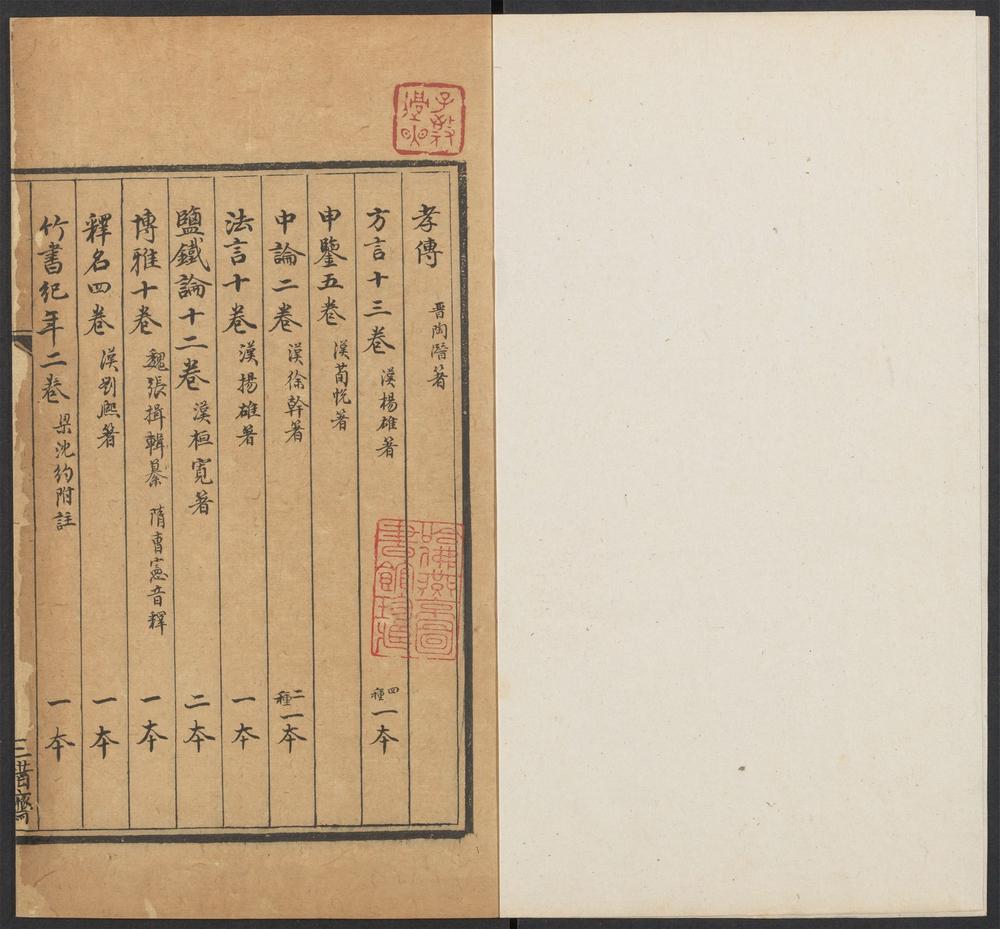 孝傳 晋陶潛著
方言十三卷 漢楊雄著 四種一本
申鑒五卷 漢荀悅著
中論二卷 漢徐幹著 二種一本
法言十卷 漢揚雄著 一本
鹽鐵論十二卷 漢桓寬著 二本
博雅十卷 魏張揖輯纂 隋曹憲音釋 一本
釋名四卷 漢劉熈著 一本
竹書紀年二卷 梁沈約附註 一本
三昔齋
哈佛燕京圖
書館珍藏